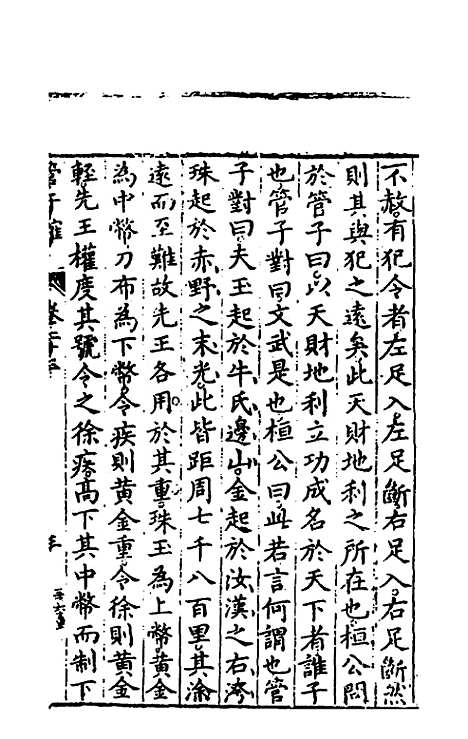 不赦有犯令者左足入左足斷右足入右足斷然
則其與犯之遠矣此天財地利之所在也桓公問
於管子曰以天財地利立功成名於天下者誰子
也管子對曰文武是也桓公曰此若言何謂也管
子對曰夫玉起於牛氏邊山金起於汝漢之右洿
珠起於赤野之末光此皆距周七千八百里其涂
遠而至難故先王各用於其重珠玉為上幣黃金
為中幣刀布為下幣令疾則黃金重令徐則黃金
輕先王權度其號令之徐疾高下其中幣而制下